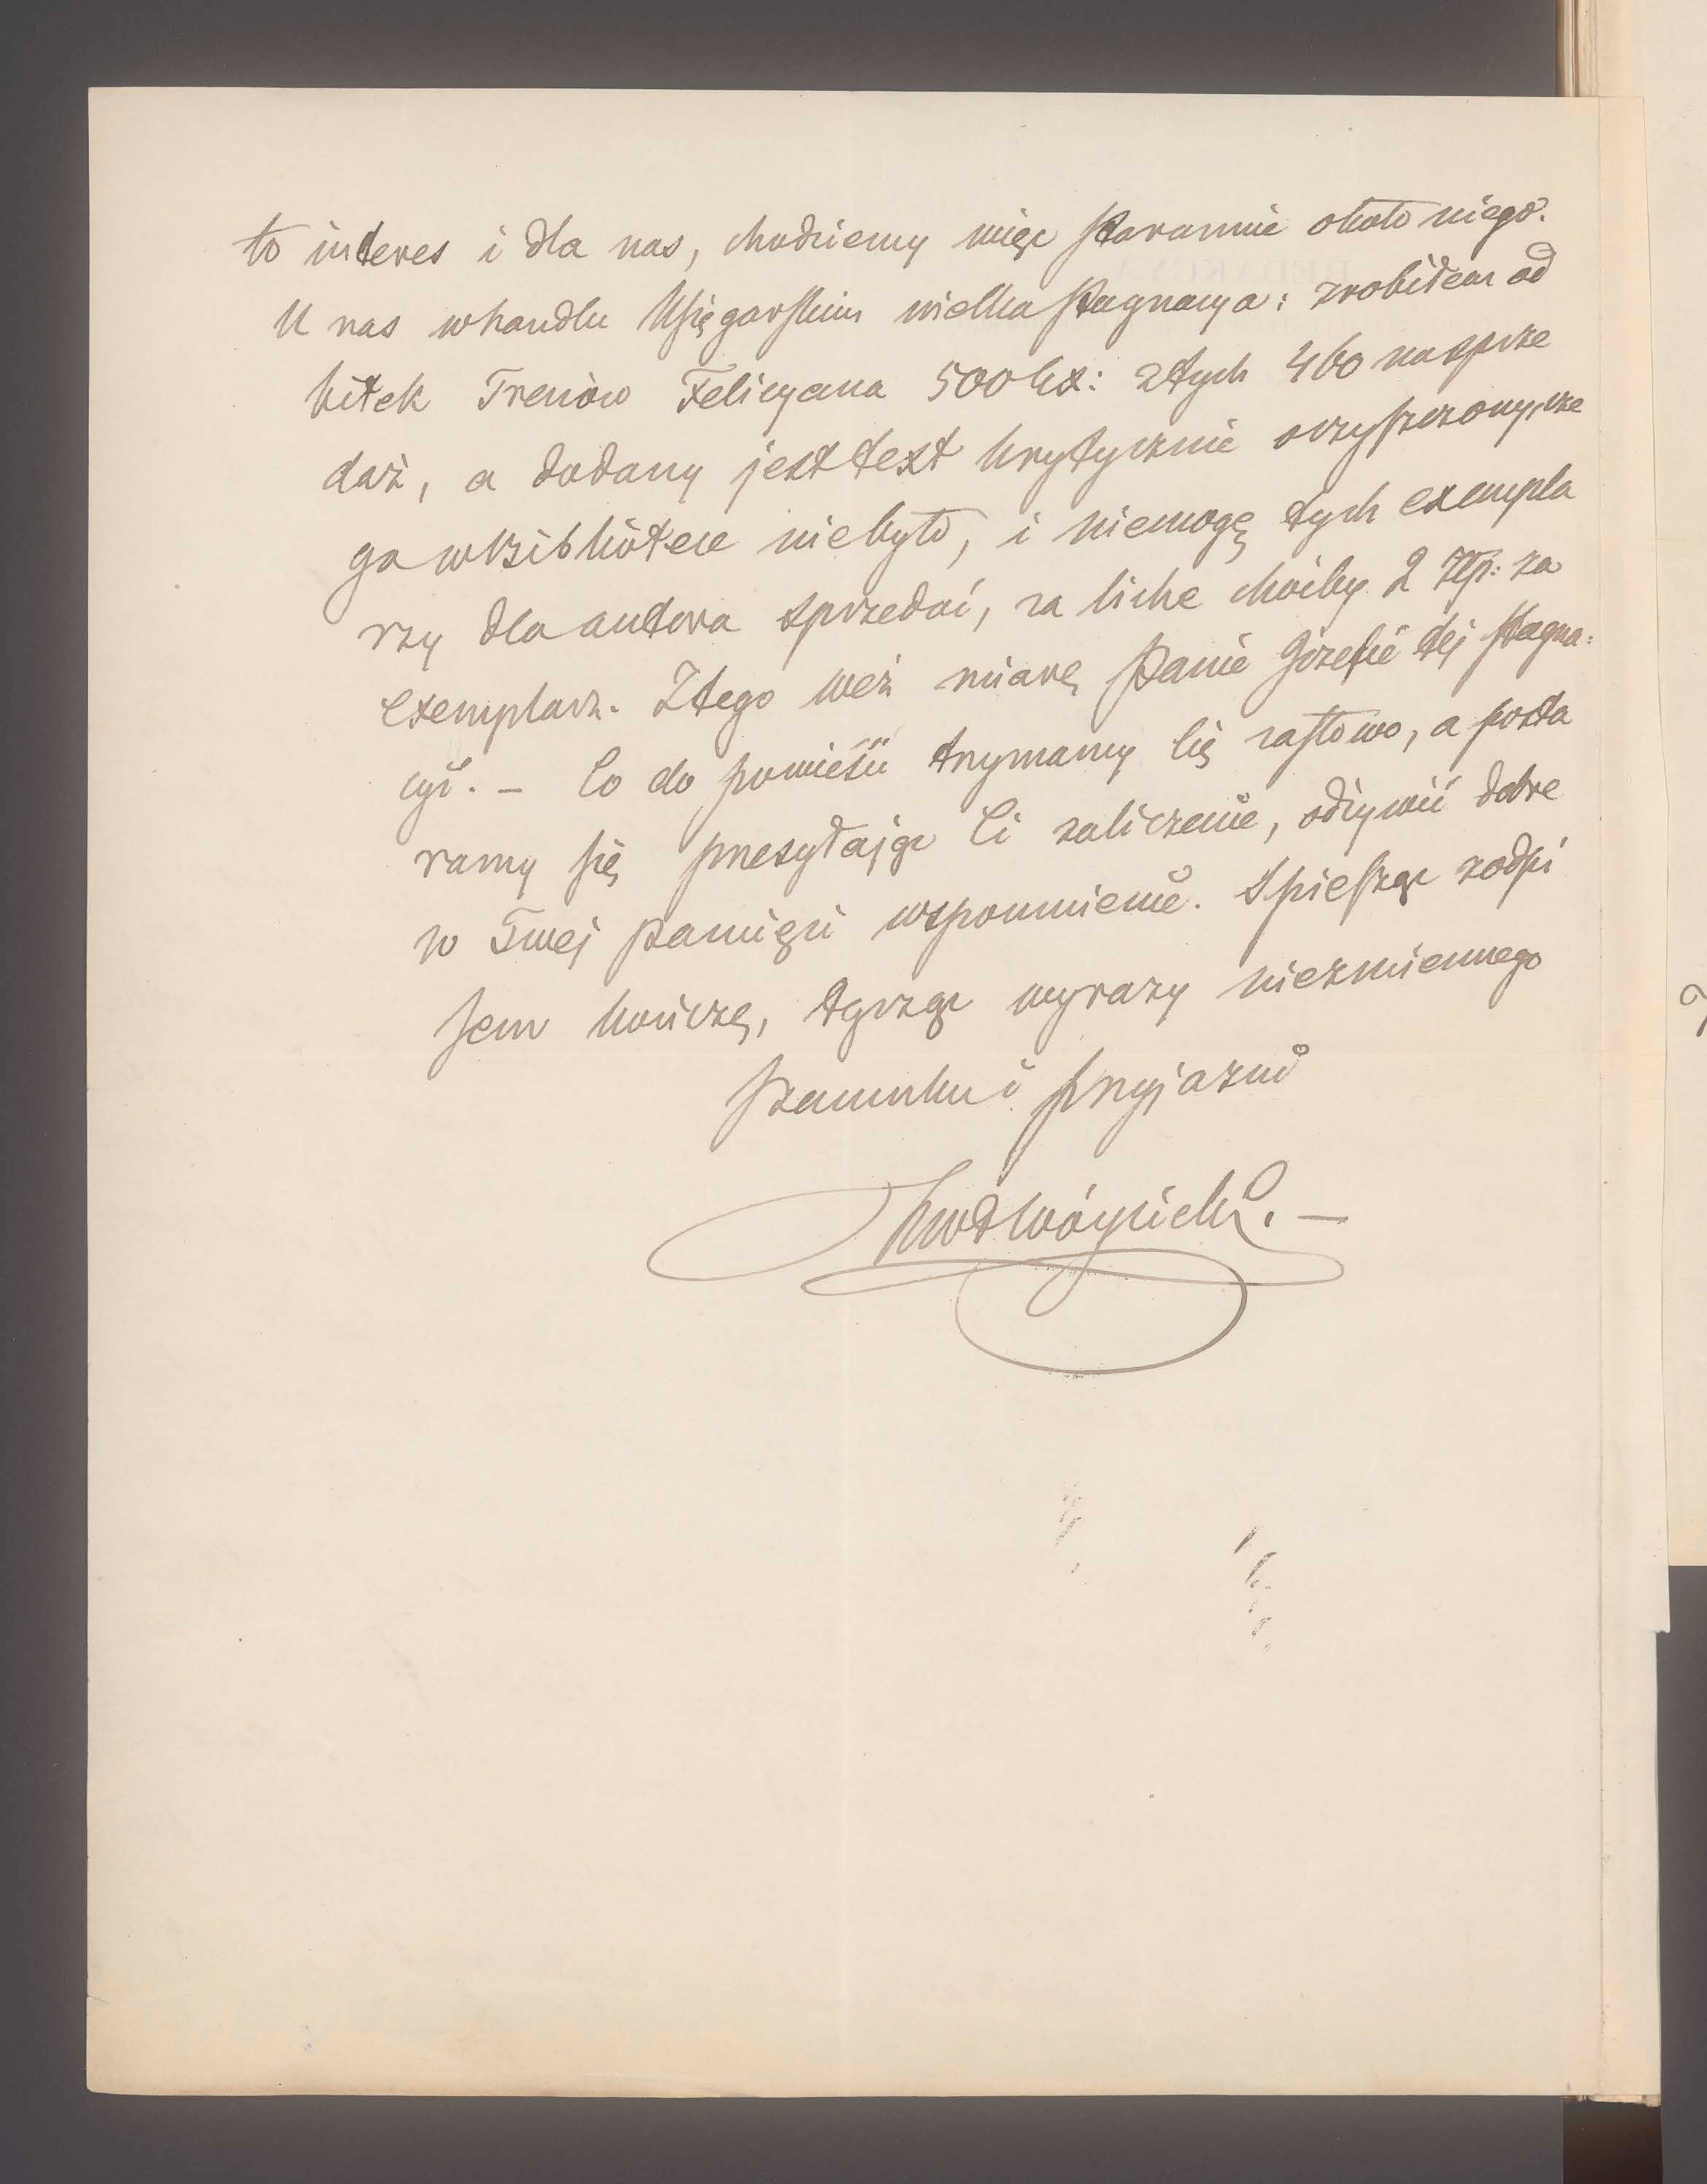 to interes i dla nas, chodziemy więc starannie około niego.
U nas w handlu Księgarskim wielka stagnacya: zrobiłem od
bitek Trenów Felicyana 500 Ex: z tych 460 na sprze
daż, a dodany jest text krytycznie oczyszczony, cze
go w Bibliotece niebyło, i niemogę tych exempla
rzy dla autora sprzedać, za liche choćby 2 złp: za
exemplarz. Z tego weź miarę Panie Józefie tej stagna:
cyi. – Co do powieści trzymamy Cię za słowo, a posta
ramy się przesyłając Ci zaliczenie, odżywić dobre
w Twej pamięci wspomnienie. Spiesząc z odpi
sem kończę, łącząc wyrazy niezmiennego
szacunku i przyjaźni
KwłWóycicki. –